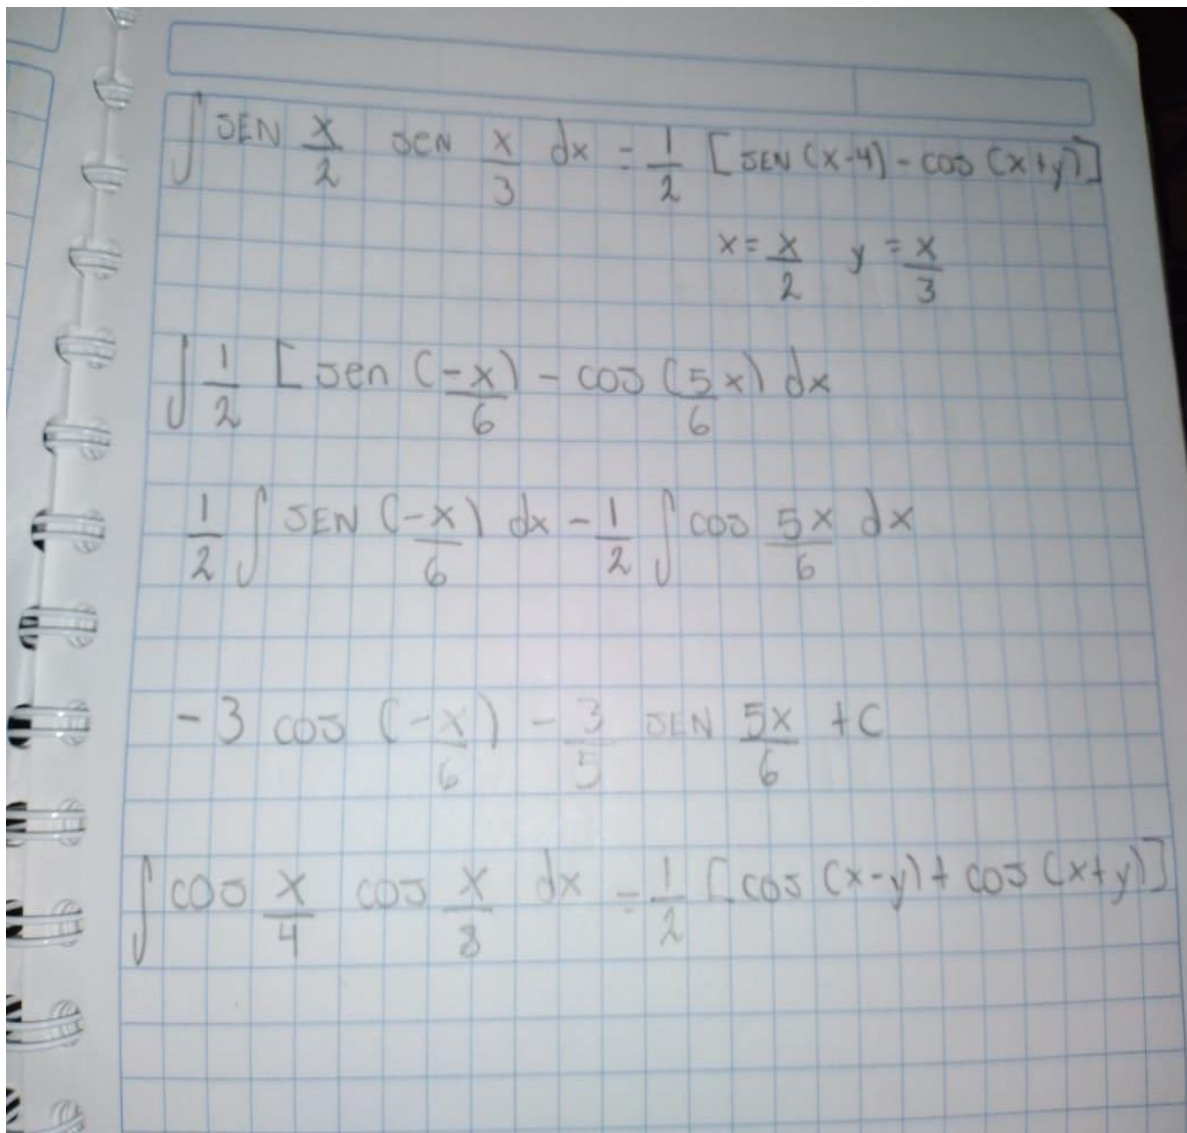 ∫ SEN x/2 sen x/3 dx = 1/2 [SEN (x-4) - cos (x+y)]
x = x/2 y = x/3
∫ 1/2 [sen (-x/6) - cos (5/6 x) dx
1/2 ∫ SEN (-x/6) dx - 1/2 ∫ cos 5x/6 dx
-3 cos (-x/6) - 3/5 SEN 5x/6 + C
∫ cos x/4 cos x/8 dx = 1/2 [cos (x-y) + cos (x+y)]